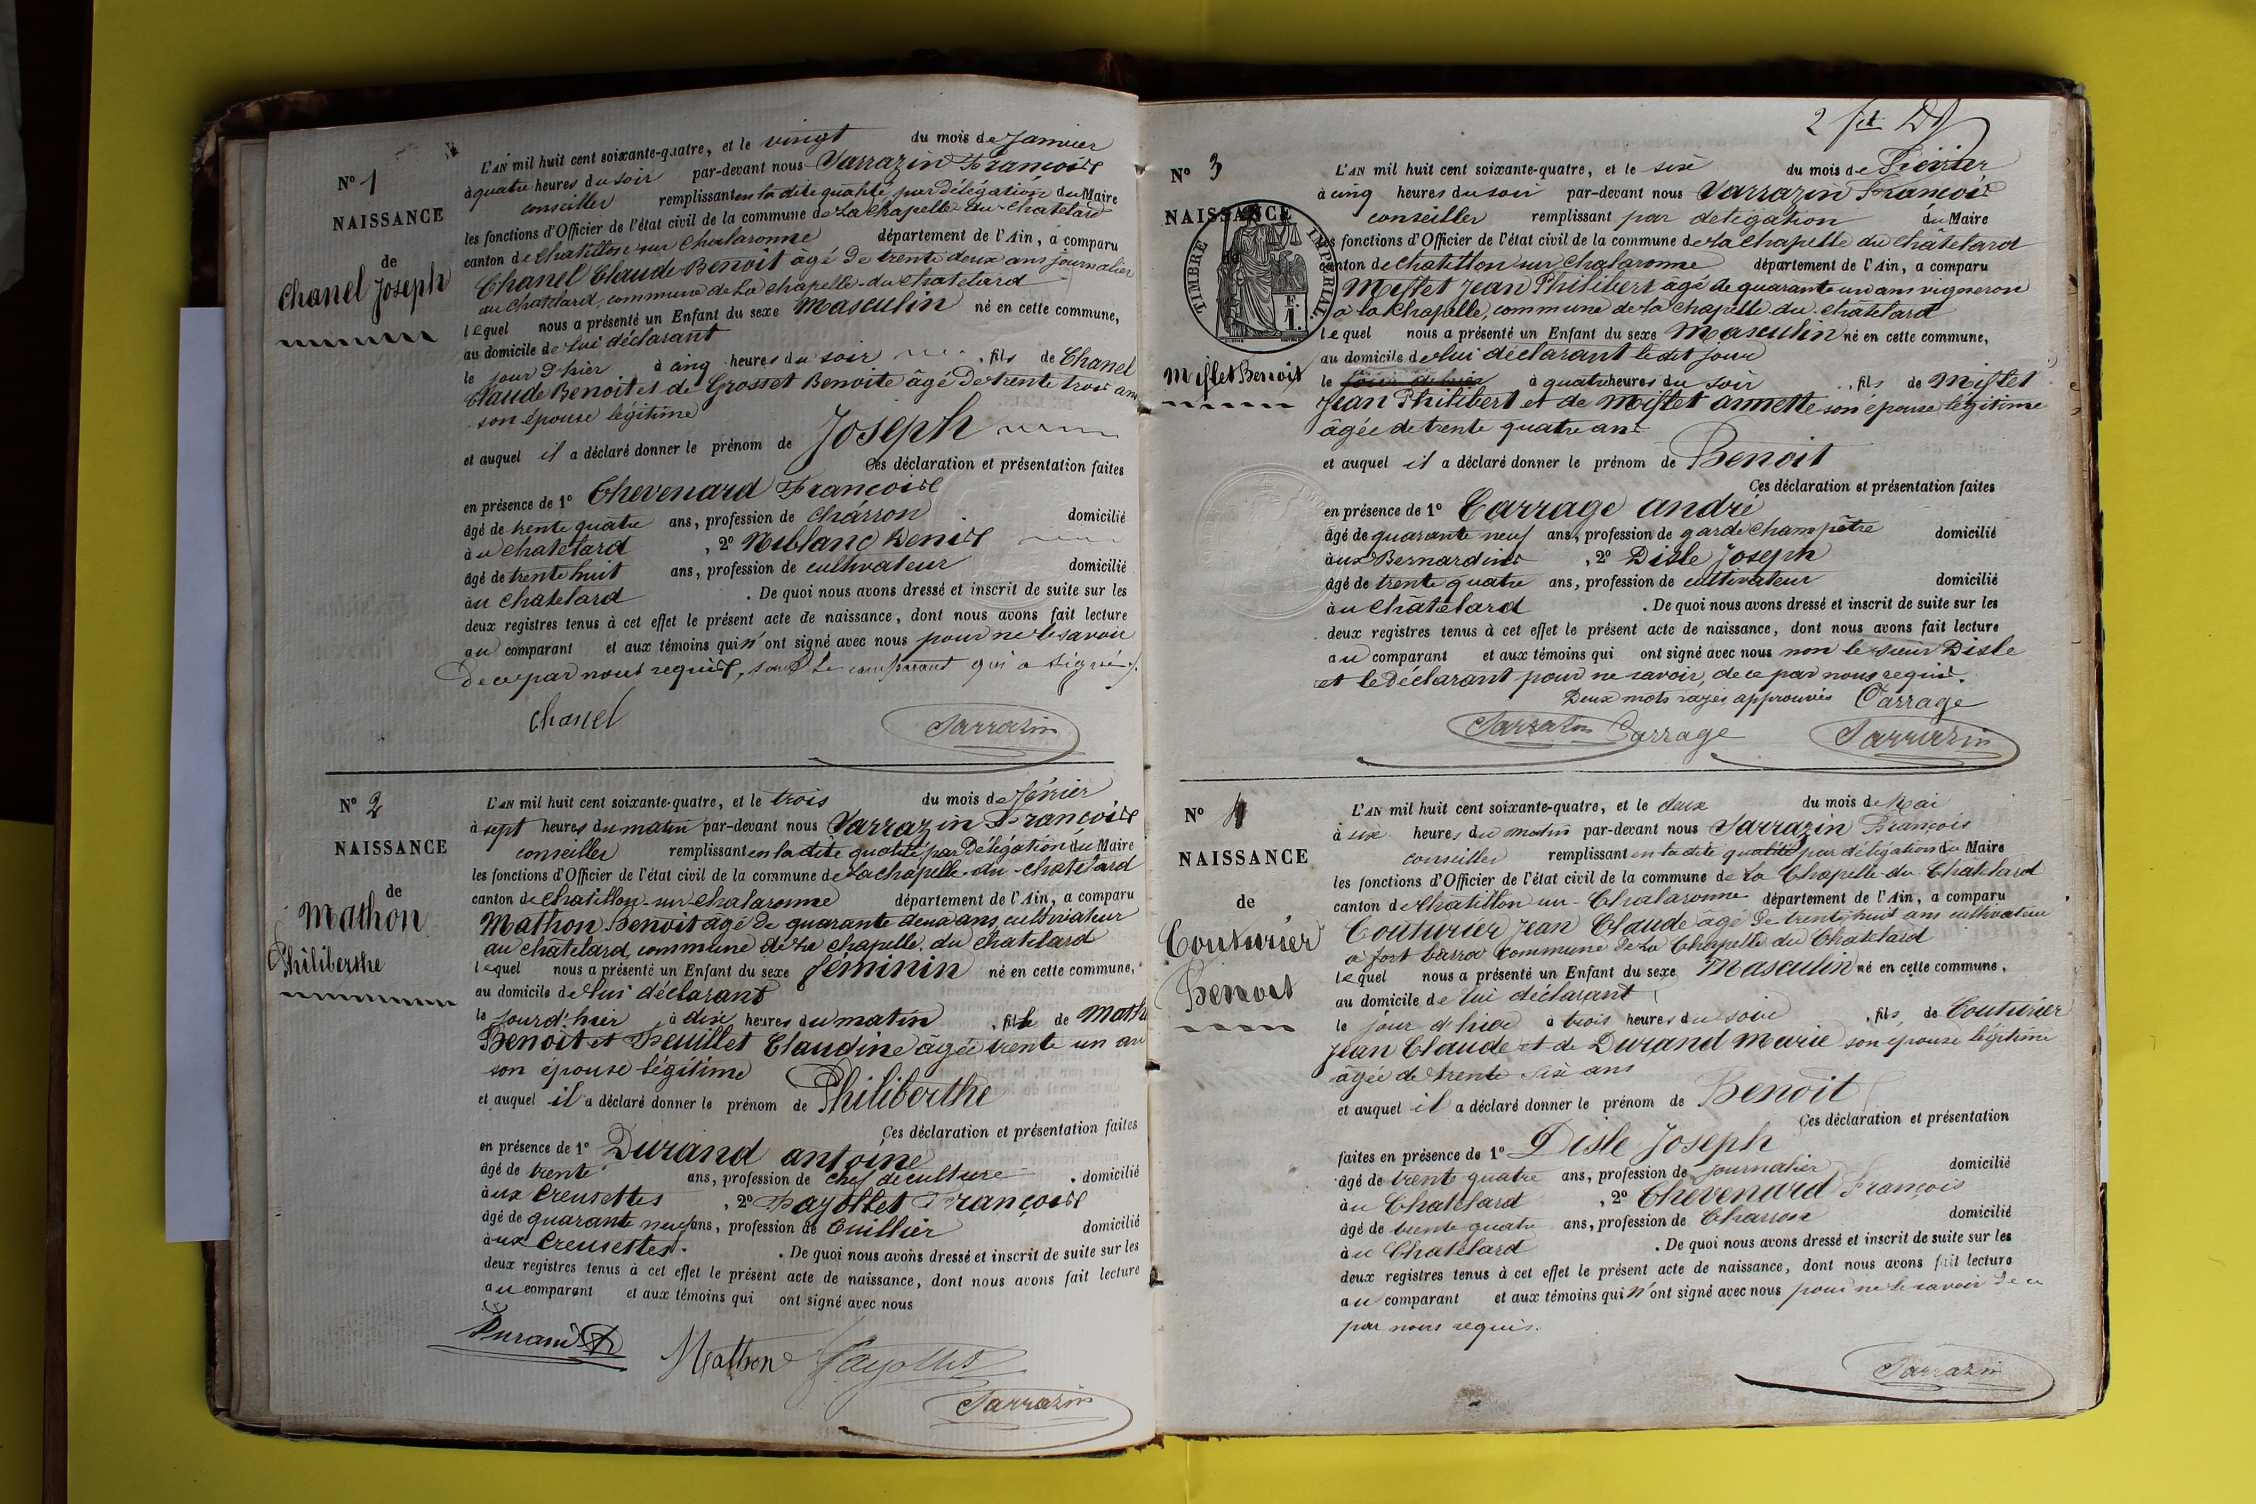 N° 1
NAISSANCE
de
Chanel Joseph
L'AN mil huit cent soixante-quatre, et le vingt du mois de Janvier
à quatre heures du soir par-devant nous Sarrazin François
conseiller remplissant en la dite qualité par délégation du Maire
les fonctions d'Officier de l'état civil de la commune de La Chapelle du Chatelard
canton de Chatillon sur Chalaronne département de l'Ain, a comparu
Chanel Claude Benoit âgé de trente deux ans journalier
au Chatelard, commune de La Chapelle du Chatelard
lequel nous a présenté un Enfant du sexe Masculin né en cette commune,
au domicile de lui déclarant
le jour d'hier à cinq heures du soir , fils de Chanel
Claude Benoit et de Grosset Benoite âgé de trente trois ans
son épouse légitime
et auquel il a déclaré donner le prénom de Joseph
Ces déclaration et présentation faites
en présence de 1° Chevenard François
âgé de trente quatre ans, profession de Charron domicilié
à u Chatelard , 2° Niblanc Denis
âgé de trente huit ans, profession de cultivateur domicilié
à u Chatelard . De quoi nous avons dressé et inscrit de suite sur les
deux registres tenus à cet effet le présent acte de naissance, dont nous avons fait lecture
au comparant et aux témoins qui n'ont signé avec nous pour ne le savoir
de ce par nous requis, sauf le comparant qui a signé.
Chanel Sarrazin
N° 2
NAISSANCE
de
Mathon
Philiberthe
L'AN mil huit cent soixante-quatre, et le trois du mois de février
à sept heures du matin par-devant nous Sarrazin François
conseiller remplissant en la dite qualité par délégation du Maire
les fonctions d'Officier de l'état civil de la commune de La Chapelle-du-Chatelard
canton de Chatillon-sur-Chalaronne département de l'Ain, a comparu
Mathon Benoit âgé de quarante deux ans, cultivateur
au Châtelard, commune de La Chapelle du Chatelard
lequel nous a présenté un Enfant du sexe féminin né en cette commune,
au domicile de lui déclarant
le jour d'hier à dix heures du matin , fille de Math
Benoit et Feuillet Claudine agée trente un an
son épouse légitime
et auquel il a déclaré donner le prénom de Philiberthe
Ces déclaration et présentation faites
en présence de 1° Durand antoine
âgé de trente ans, profession de chef de culture domicilié
à ux Creusettes , 2° Fayollet François
âgé de quarante neuf ans, profession de Cuillier domicilié
à ux Creusettes. . De quoi nous avons dressé et inscrit de suite sur les
deux registres tenus à cet effet le présent acte de naissance, dont nous avons fait lecture
au comparant et aux témoins qui ont signé avec nous
Durand
Mathon Fayollet
Sarrazin
2 fet
N° 3
NAISSANCE
TIMBRE IMPERIAL
Mistet Benoit
L'AN mil huit cent soixante-quatre, et le six du mois de Février
à cinq heures du soir par-devant nous Sarrazin François
conseiller remplissant par délégation du Maire
les fonctions d'Officier de l'état civil de la commune de La Chapelle du Châtelard
canton de Chatillon sur Chalaronne département de l'Ain, a comparu
Mistet Jean Philibert âgé de quarante un ans vigneron
à la Chapelle, commune de La Chapelle du Châtelard
lequel nous a présenté un Enfant du sexe Masculin né en cette commune,
au domicile de lui déclarant le dit jour
le jour d'hier à quatre heures du soir , fils de Mistet
Jean Philibert et de Mistet annette son épouse légitime
âgée de trente quatre ans
et auquel il a déclaré donner le prénom de Benoit
Ces déclaration et présentation faites
en présence de 1° Carrage andré
âgé de quarante neuf ans, profession de garde champêtre domicilié
à ux Bernardines , 2° Disle Joseph
âgé de trente quatre ans, profession de cultivateur domicilié
à u Châtelard . De quoi nous avons dressé et inscrit de suite sur les
deux registres tenus à cet effet le présent acte de naissance, dont nous avons fait lecture
au comparant et aux témoins qui ont signé avec nous non le sieur Disle
et le Déclarant pour ne savoir, de ce par nous requis.
Deux mots rayés approuvés Carrage
Sarrazin Carrage Sarrazin
N° 4
NAISSANCE
de
Couturier
Benoit
L'AN mil huit cent soixante-quatre, et le deux du mois de Mai
à six heures du matin par-devant nous Sarrazin François
conseiller remplissant en la dite qualité par délégation du Maire
les fonctions d'Officier de l'état civil de la commune de La Chapelle du Chatelard
canton de Châtillon sur-Chalaronne département de l'Ain, a comparu
Couturier Jean Claude âgé de trente huit ans cultivateur
à fort barrod commune de La Chapelle du Chatelard
lequel nous a présenté un Enfant du sexe Masculin né en cette commune,
au domicile de lui déclarant
le jour d'hier à trois heures du soir , fils de Couturier
Jean Claude et de Durand Marie son épouse légitime
âgée de trente six ans
et auquel il a déclaré donner le prénom de Benoit
Ces déclaration et présentation
faites en présence de 1° Disle Joseph
âgé de trente quatre ans, profession de journalier domicilié
à u Chatelard , 2° Chevenard François
âgé de trente quatre ans, profession de Charron domicilié
à u Chatelard . De quoi nous avons dressé et inscrit de suite sur les
deux registres tenus à cet effet le présent acte de naissance, dont nous avons fait lecture
au comparant et aux témoins qui n'ont signé avec nous pour ne le savoir de ce
par nous requis.
Sarrazin